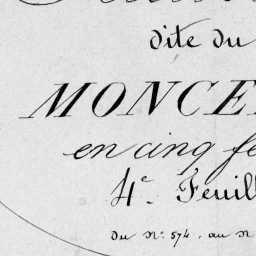 dite du
MONCE
en cinq fe
4e. Feuill
du No. 574. au N